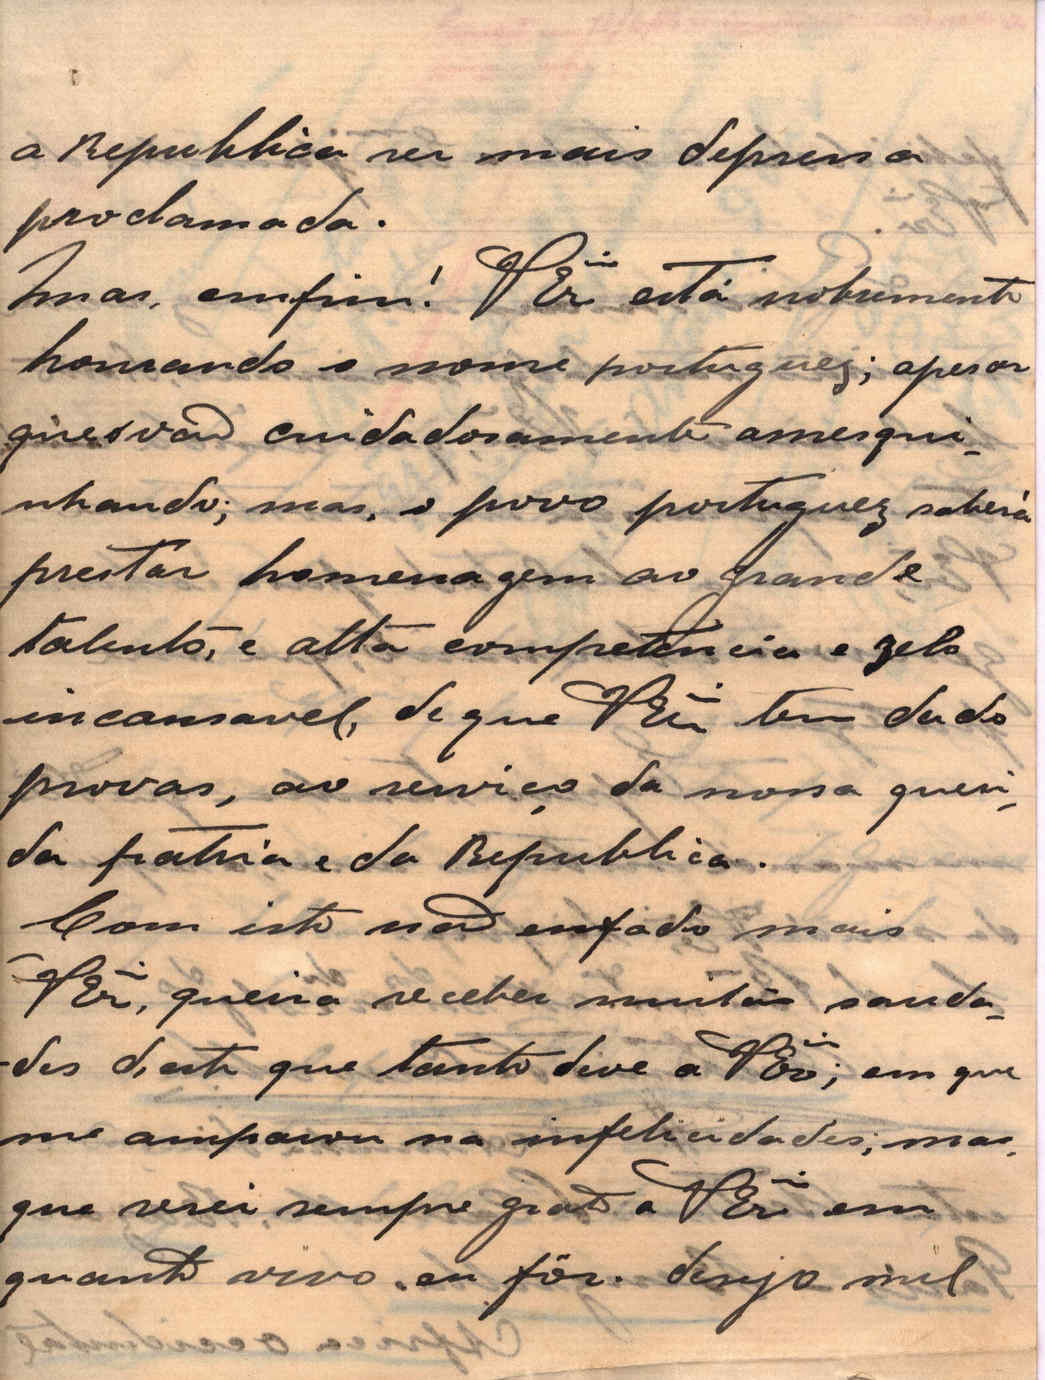 a Republica ser mais depressa
proclamada.
mas, emfim! V Exª está nobremente
honrando o nome portuguez; apesar
que o vão cuidadosamente amesqui-
nhando; mas, o povo portuguez saberá
prestar homenagem ao grande
talento, e alta competencia e zelo
incansavel, de que V Exª tem dado
provas, ao serviço da nossa queri-
da patria e da Republica.
Com isto não enfado mais
V Exª, queira receber muitas sauda-
des d'este que tanto deve a V Exª; em que
me amparou na infelicidades; mas,
que serei sempre grato a V Exª em
quanto vivo eu fôr. desejo mil
Africa occidental